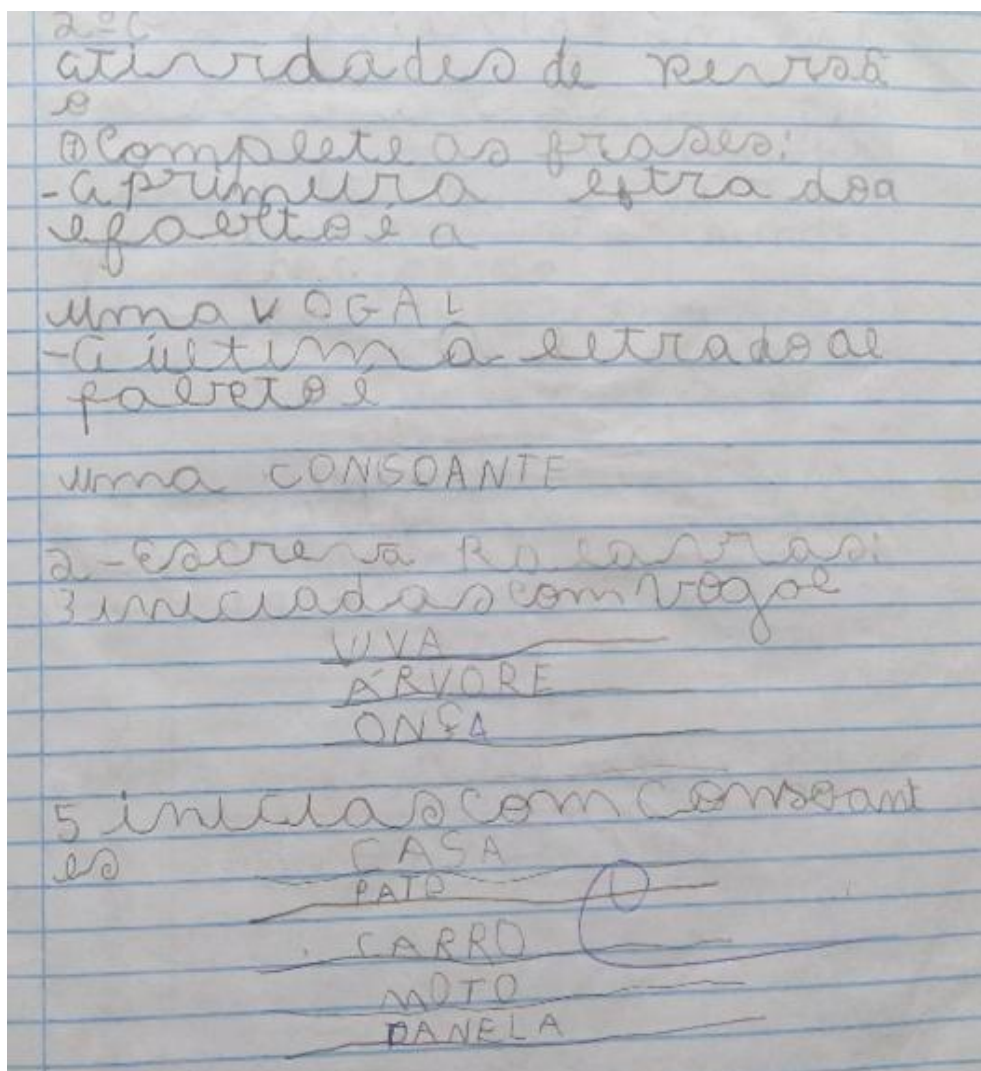 2º C
atividades de revisã
o
① Complete as frases:
- a primeira letra doa
lfabeto é a
uma VOGAL
- a última letra do al
fabeto é
uma CONSOANTE
2 - Escreva palavras:
3 iniciadas com vogal
UVA
ÁRVORE
ONÇA
5 inicias com consoant
es CASA
PATO
CARRO
MOTO
PANELA